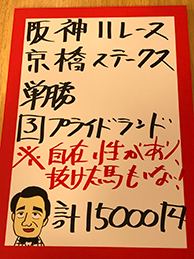 阪神11レース
京橋ステークス
単勝
3プライドランド
※自在性があり、
抜け太馬もいない!
計15000円